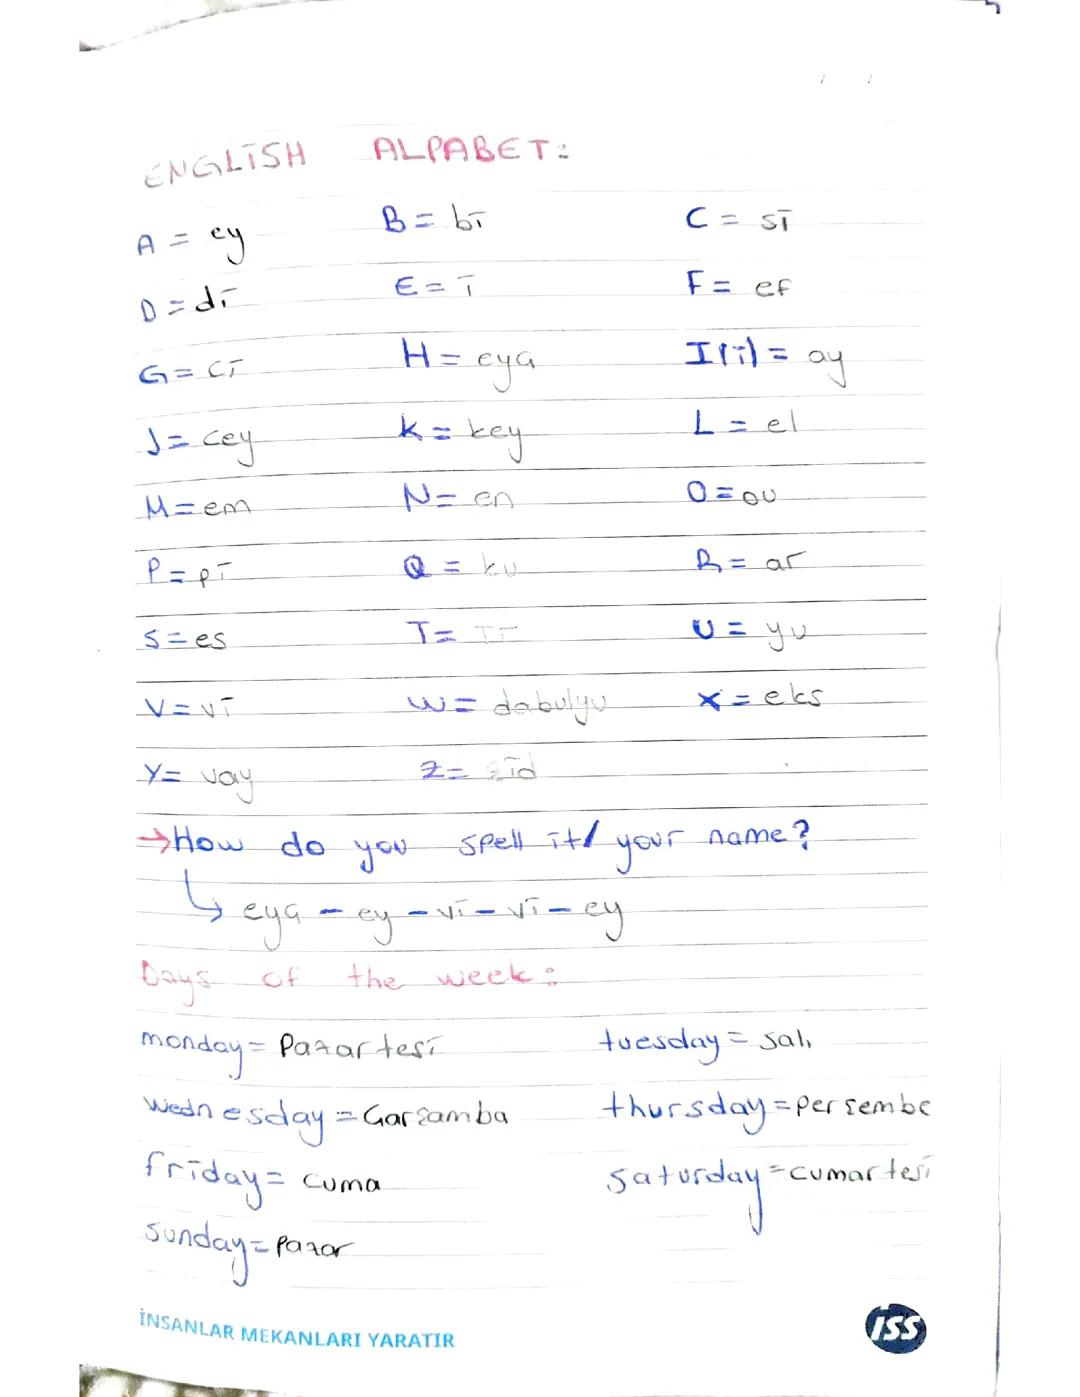 ENGLİSH ALPABET:
A = ey B = bi C = si
D = di E = i F = ef
G = ci H = eyç I(i) = ay
J = cey K = key L = el
M = em N = en O = ou
P = pi Q = ku R = ar
S = es T = Ti U = yu
V = vi W = dabulyu X = eks
Y = vay Z = zid
→ How do you spell it/ your name?
↳ eyç - ey - vi - vi - ey
Days of the week:
monday = Pazartesi tuesday = salı
wednesday = Çarşamba thursday = perşembe
friday = cuma saturday = cumartesi
sunday = Pazar
İNSANLAR MEKANLARI YARATIR
ISS